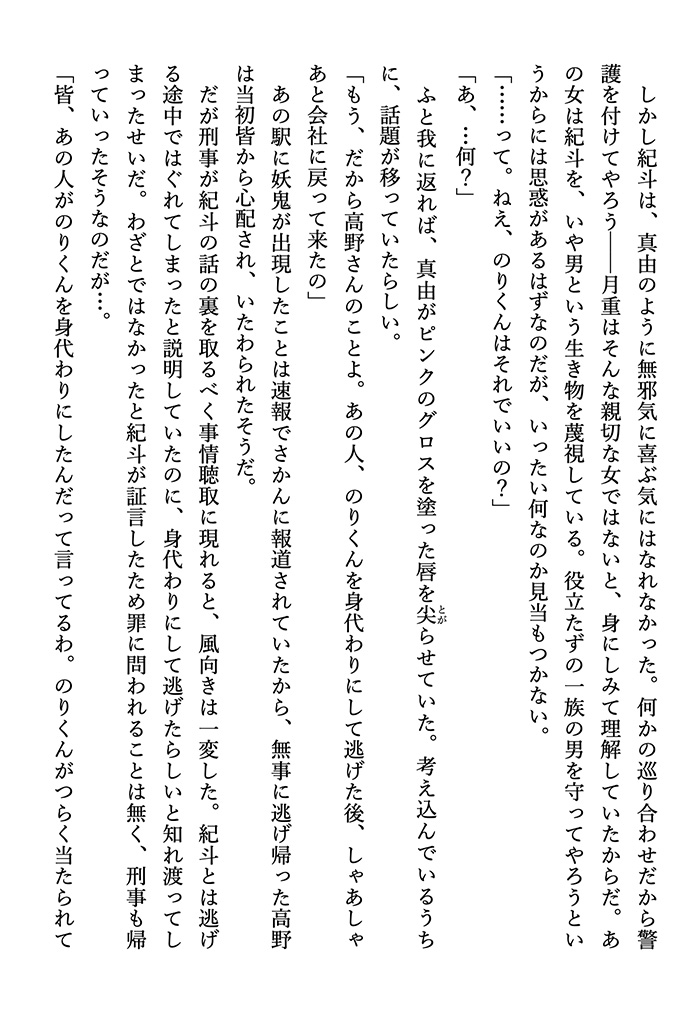 しかし紀斗は、真由のように無邪気に喜ぶ気にはなれなかった。何かの巡り合わせだから警
護を付けてやろう――月重はそんな親切な女ではないと、身にしみて理解していたからだ。あ
の女は紀斗を、いや男という生き物を蔑視している。役立たずの一族の男を守ってやろうとい
うからには思惑があるはずなのだが、いったい何なのか見当もつかない。
「……って。ねえ、のりくんはそれでいいの？」
「あ、…何？」
ふと我に返れば、真由がピンクのグロスを塗った唇を尖らせていた。考え込んでいるうち
とが
に、話題が移っていたらしい。
「もう、だから高野さんのことよ。あの人、のりくんを身代わりにして逃げた後、しゃあしゃ
あと会社に戻って来たの」
あの駅に妖鬼が出現したことは速報でさかんに報道されていたから、無事に逃げ帰った高野
は当初皆から心配され、いたわられたそうだ。
だが刑事が紀斗の話の裏を取るべく事情聴取に現れると、風向きは一変した。紀斗とは逃げ
る途中ではぐれてしまったと説明していたのに、身代わりにして逃げたらしいと知れ渡ってし
まったせいだ。わざとではなかったと紀斗が証言したため罪に問われることは無く、刑事も帰
っていったそうなのだが…。
「皆、あの人がのりくんを身代わりにしたんだって言ってるわ。のりくんがつらく当たられて